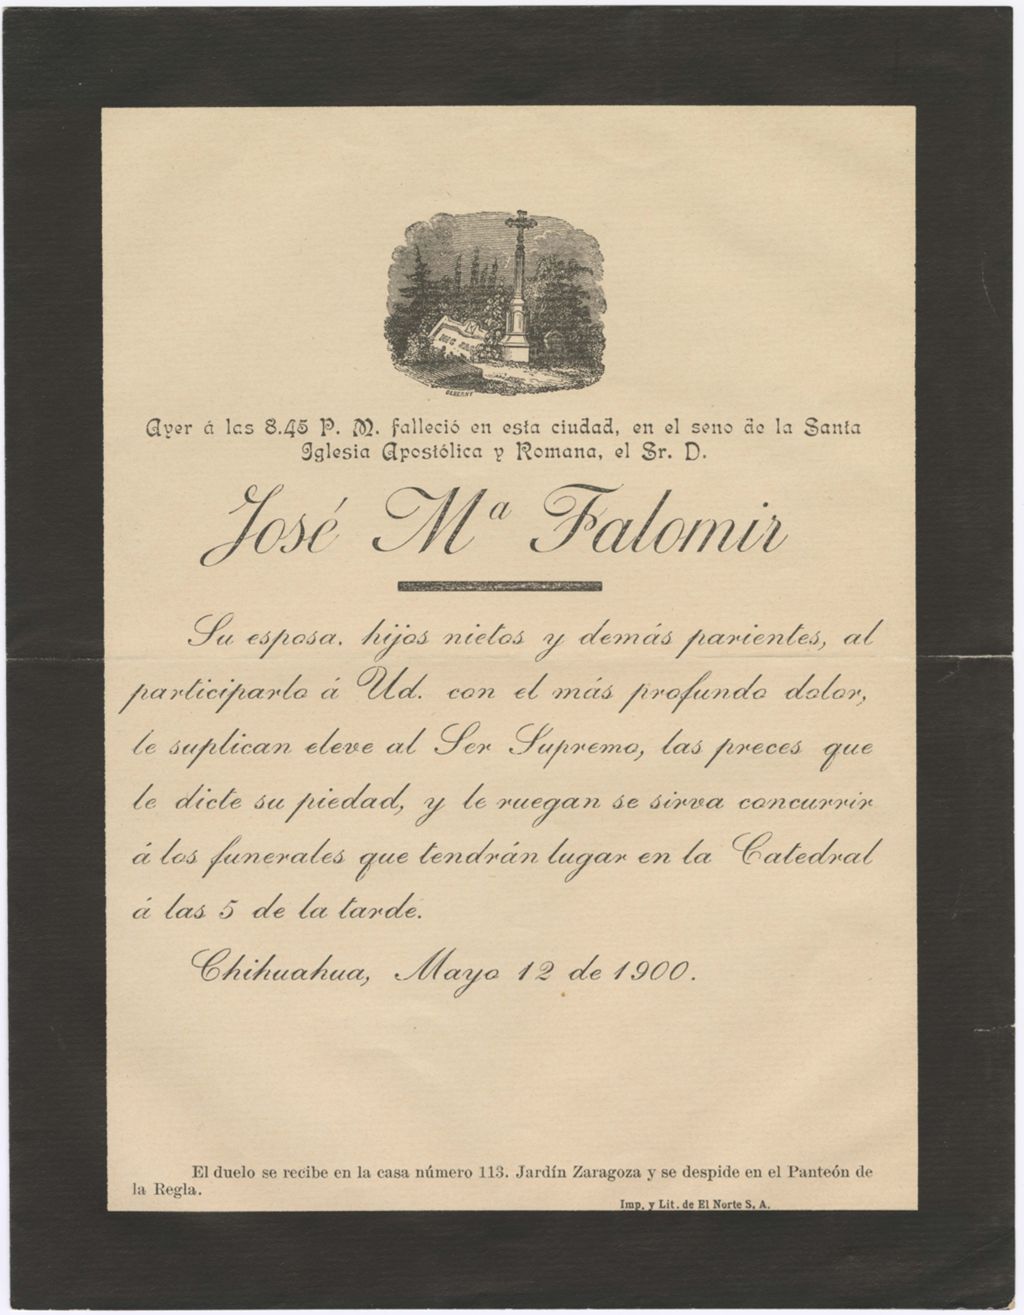 HIC JAC
DEBERNY
Ayer á las 8.45 P. M. falleció en esta ciudad, en el seno de la Santa
Iglesia Apostólica y Romana, el Sr. D.
José Mª Falomir
Su esposa. hijos nietos y demás parientes, al
participarlo á Ud. con el más profundo dolor,
le suplican eleve al Ser Supremo, las preces que
le dicte su piedad, y le ruegan se sirva concurrir
á los funerales que tendrán lugar en la Catedral
á las 5 de la tarde.
Chihuahua, Mayo 12 de 1900.
El duelo se recibe en la casa número 113. Jardín Zaragoza y se despide en el Panteón de
la Regla.
Imp. y Lit. de El Norte S. A.